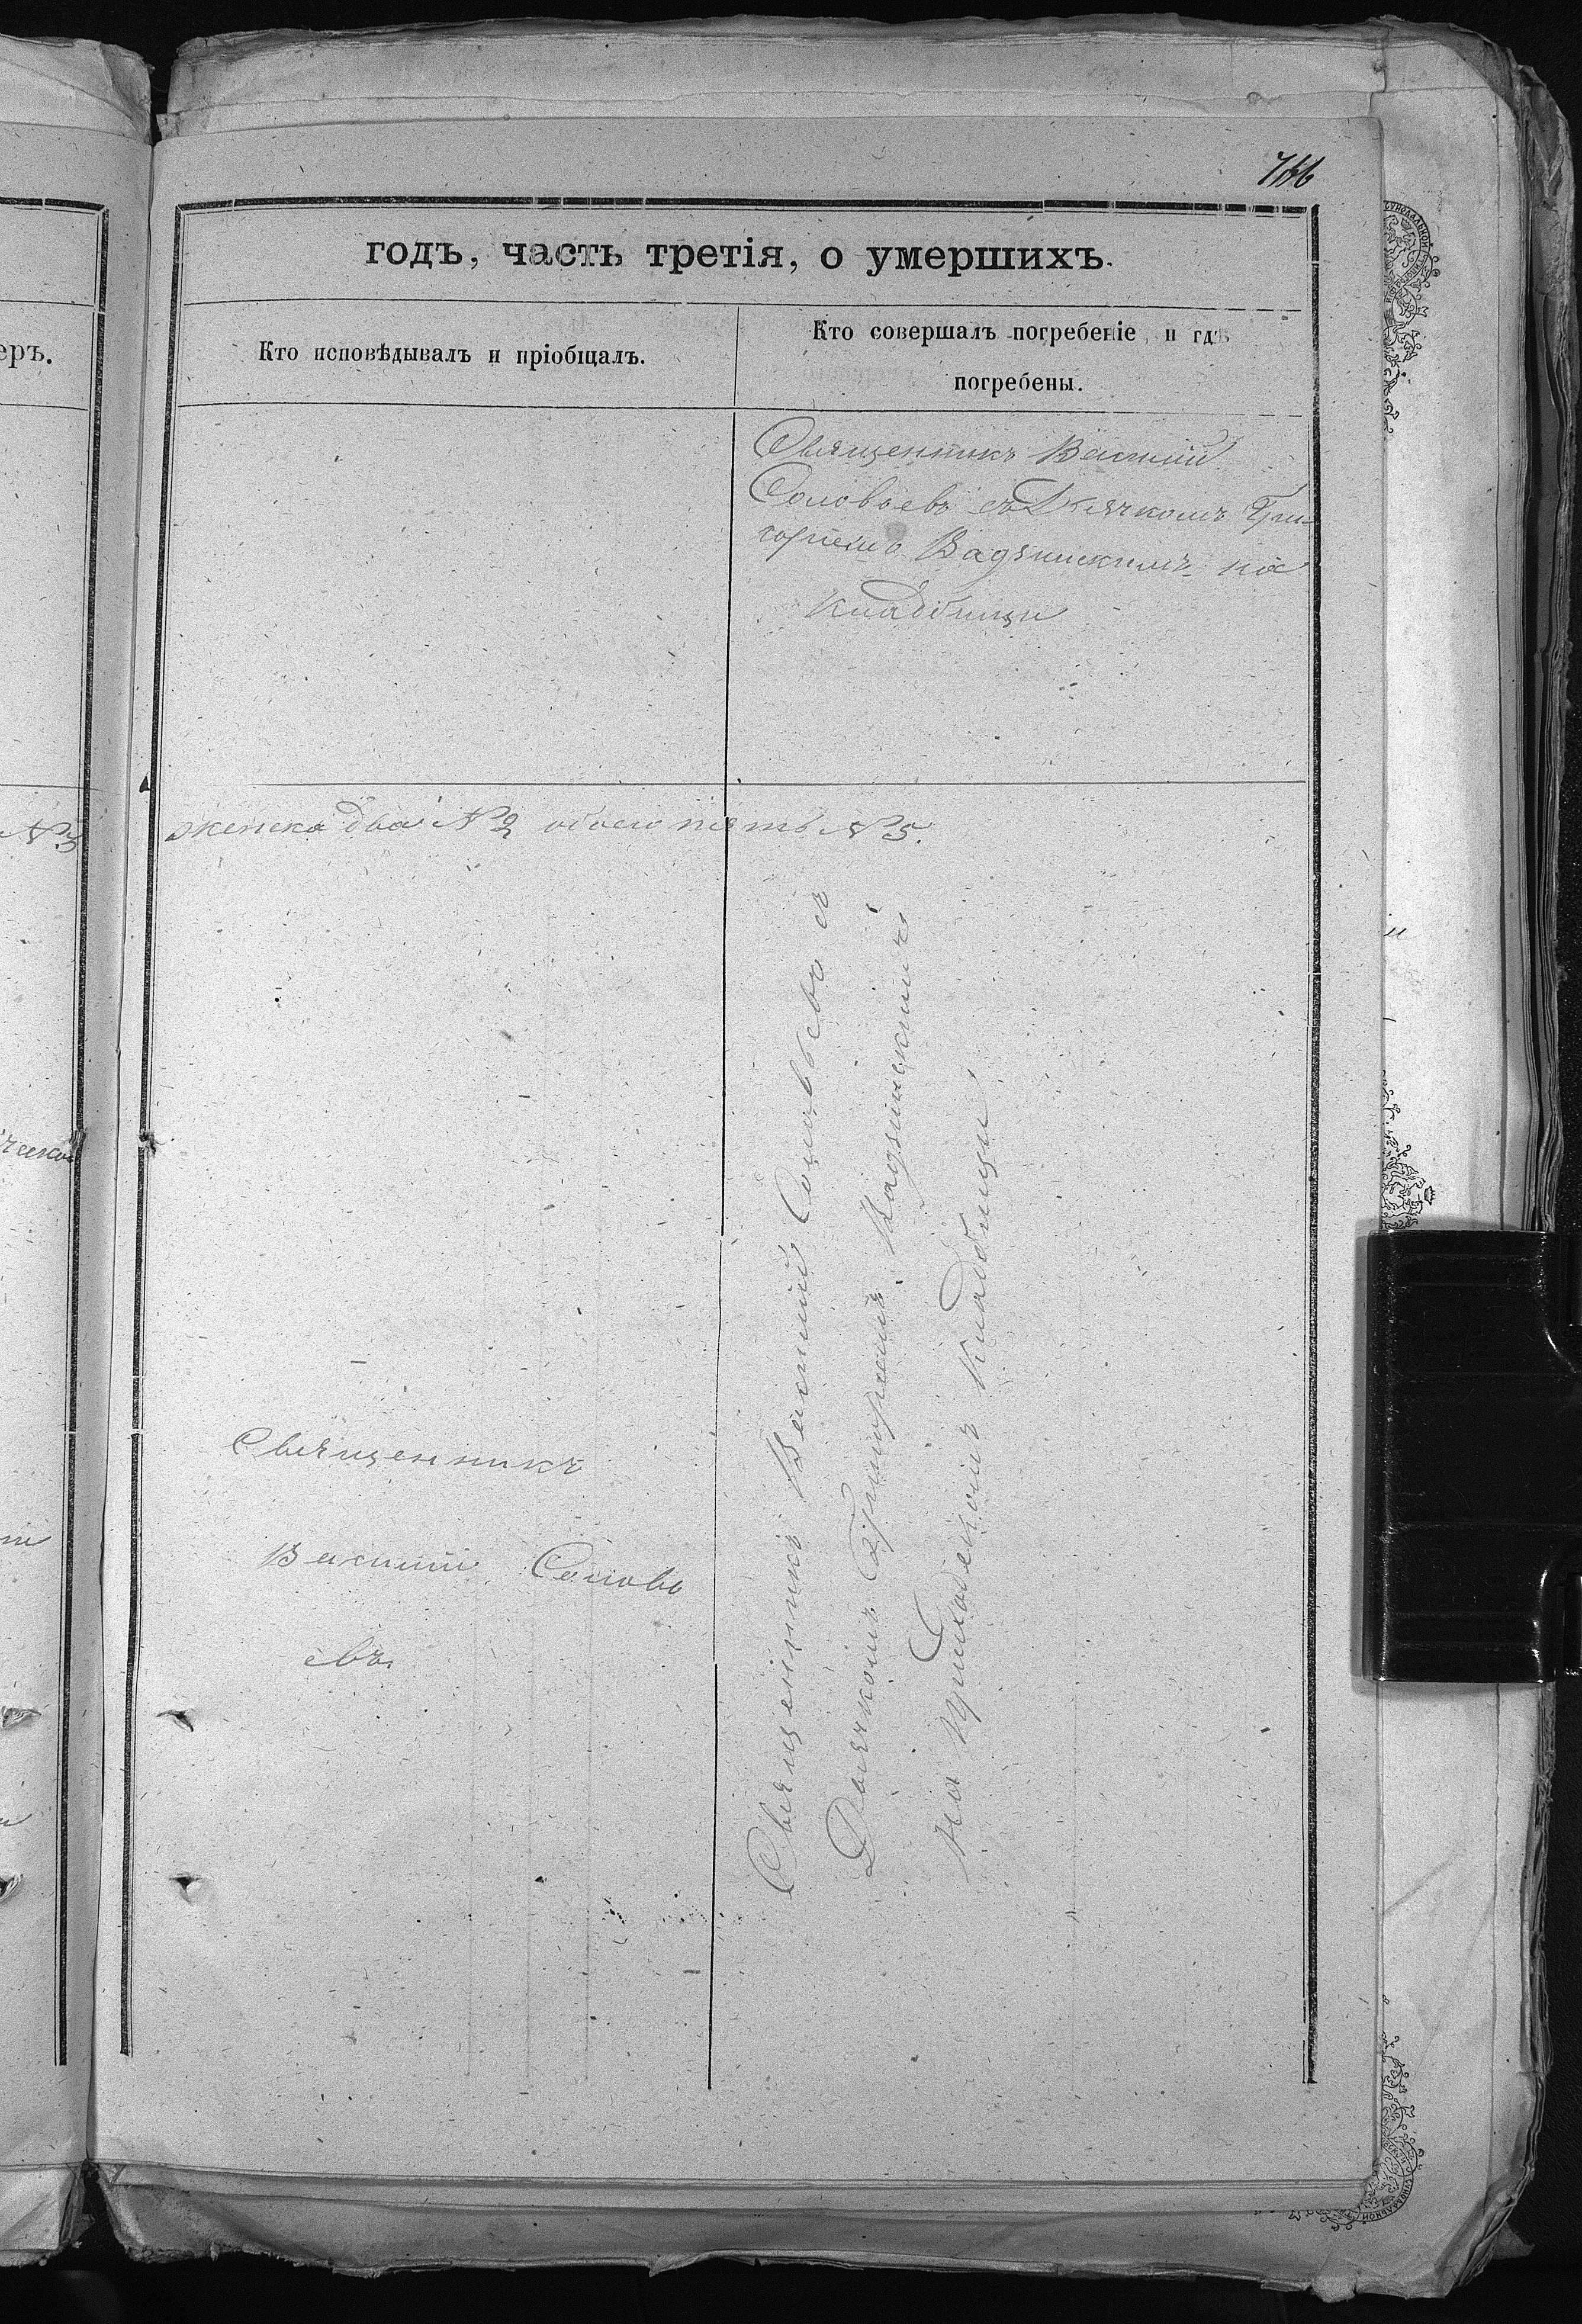 766
годъ, часть третія, о умершихъ.
еръ.
Кто исповѣдывалъ и пріобщалъ.
Кто совершалъ погребеніе, и гдѣ
погребены.
Священникъ Василій
Соловьевъ съ Дьячкомъ Гри-
горіемъ Вадзинскимъ на
кладбищи
№ 3
женска два № 2 обоего пять № 5.
Священникъ
Василій Соловь
евъ
Священникъ Василій Соловьевъ съ
Дьячкомъ Григоріемъ Вадзинскимъ
на приходскомъ кладбищи